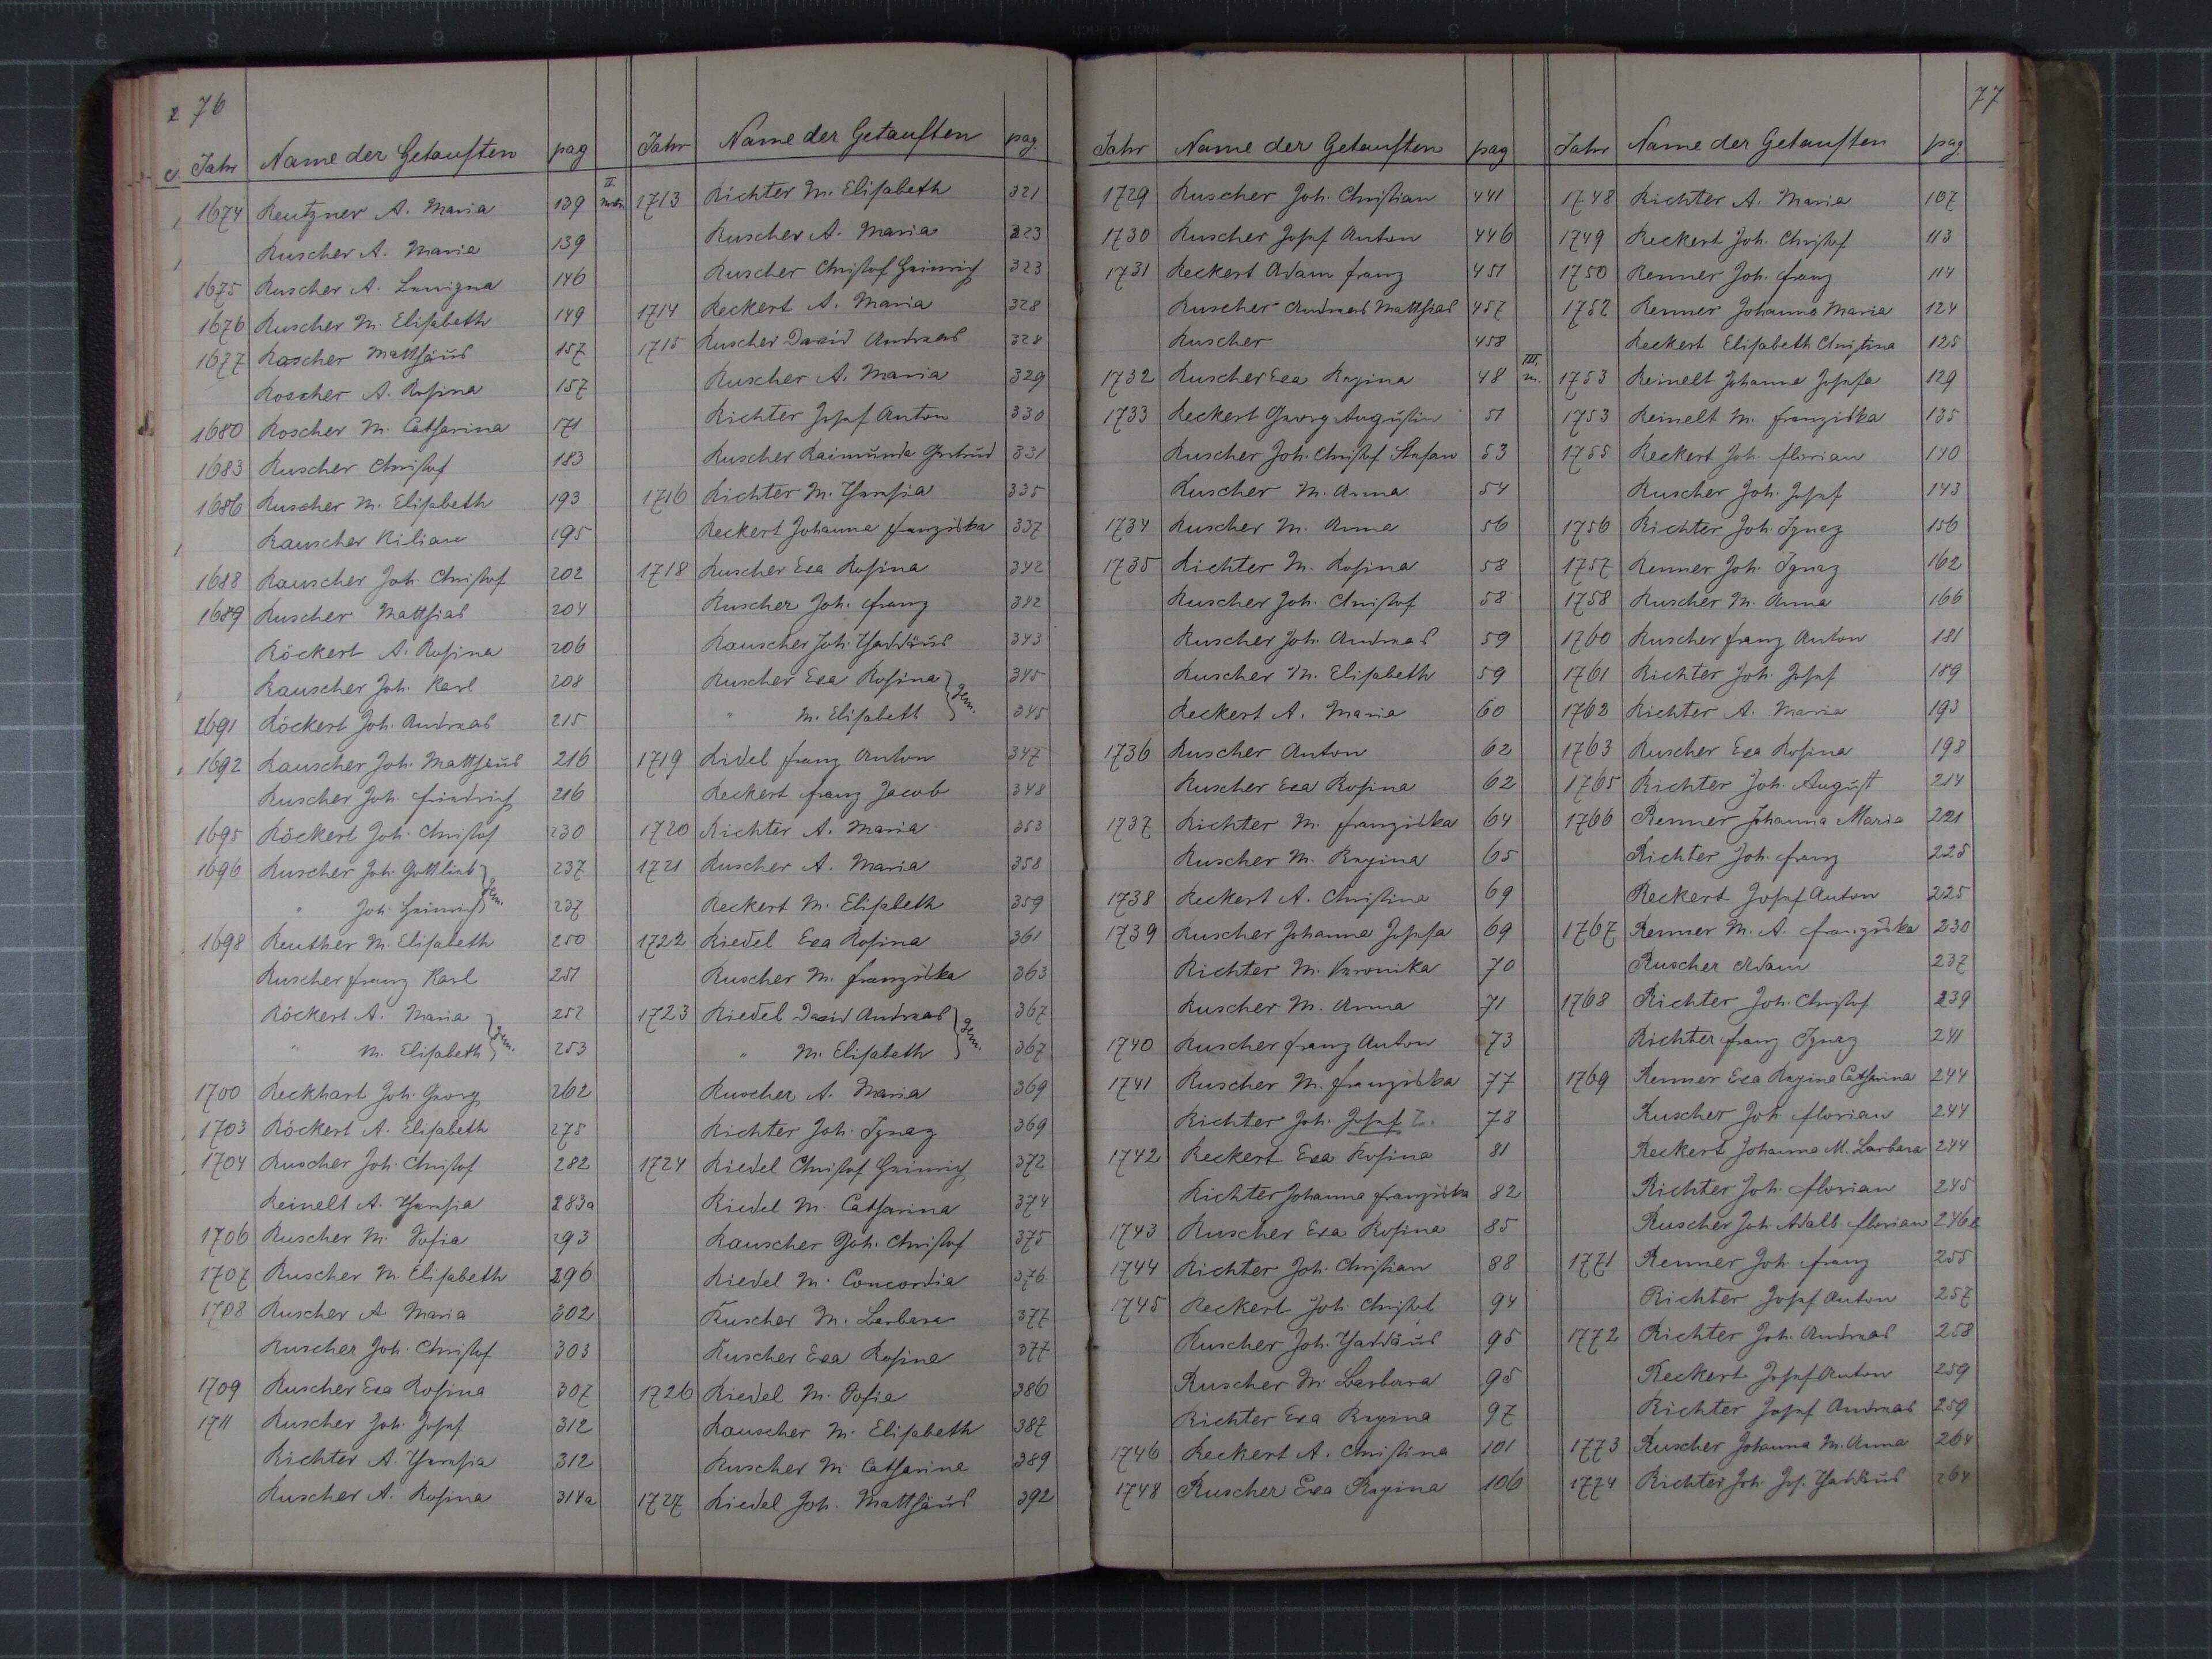 76
Jahr Name der Getauften pag
1674 Reutzner A. Maria 139
Ruscher A. Maria 139
1675 Ruscher A. 146
1676 Ruscher M. Elisabeth 149
1677 Roscher Matthäus 157
Roscher A. Rosina 157
1680 Roscher M. Catharina 171
1683 Ruscher Christof 183
1686 Ruscher M. Elisabeth 193
Rauscher Kilian 195
1688 Rauscher Joh. Christof 202
1689 Ruscher Matthias 204
Röckert A. Rosina 206
Rauscher Joh. Karl 208
1691 Röckert Joh. Andreas 215
1692 Rauscher Joh. Matthäus 216
Ruscher Joh. Friedrich 216
1695 Röckert Joh. Christof 230
1696 Ruscher Joh. Gottlieb } gem. 237
" Joh. Heinrich 237
1698 Reuther M. Elisabeth 250
Ruscher Franz Karl 251
Röckert A. Maria } gem. 252
" M. Elisabeth 253
1700 Reckhart Joh. Georg 262
1703 Röckert A. Elisabeth 275
1704 Ruscher Joh. Christof 282
Reinelt A. Theresia 283a
1706 Ruscher M. Sofia 293
1707 Ruscher M. Elisabeth 296
1708 Ruscher A. Maria 302
Ruscher Joh. Christof 303
1709 Ruscher Eva Rosina 307
1711 Ruscher Joh. Josef 312
Richter A. Theresia 312
Ruscher A. Rosina 314a
Jahr Name der Getauften pag.
II. 1713 Richter M. Elisabeth 321
Ruscher A. Maria 323
Ruscher Christof Heinrich 323
1714 Reckert A. Maria 328
1715 Ruscher David Andreas 328
Ruscher A. Maria 329
Richter Josef Anton 330
Ruscher Raimunda Gertrud 331
1716 Richter M. Theresia 335
Reckert Johanna Franziska 337
1718 Ruscher Eva Rosina 342
Ruscher Joh. Franz 342
Rauscher Joh. Thaddäus 343
Ruscher Eva Rosina } gem. 345
" M. Elisabeth 345
1719 Ridel Franz Anton 347
Reckert Franz Jacob 348
1720 Richter A. Maria 353
1721 Ruscher A. Maria 358
Reckert M. Elisabeth 359
1722 Riedel Eva Rosina 361
Ruscher M. Franziska 363
1723 Riedel David Andreas } gem. 367
" M. Elisabeth 367
Ruscher A. Maria 369
Richter Joh. Ignaz 369
1724 Riedel Christof Heinrich 372
Riedel M. Catharina 374
Rauscher Joh. Christof 375
Riedel M. Concordia 376
Ruscher M. Barbara 377
Ruscher Eva Rosina 377
1726 Riedel M. Sofia 386
Rauscher M. Elisabeth 387
Ruscher M. Catharina 389
1727 Riedel Joh. Matthäus 392
Jahr Name der Getauften pag
1729 Ruscher Joh. Christian 441
1730 Ruscher Josef Anton 446
1731 Reckert Adam Franz 451
Ruscher Andreas Matthias 457
Ruscher 458
1732 Ruscher Eva Regina 48
1733 Reckert Georg Augustin 51
Ruscher Joh. Christof Stefan 53
Ruscher M. Anna 54
1734 Ruscher M. Anna 56
1735 Richter M. Rosina 58
Ruscher Joh. Christof 58
Ruscher Joh. Andreas 59
Ruscher M. Elisabeth 59
Reckert A. Maria 60
1736 Ruscher Anton 62
Ruscher Eva Rosina 62
1737 Richter M. Franziska 64
Ruscher M. Regina 65
1738 Reckert A. Christina 69
1739 Ruscher Johanna Josefa 69
Richter M. Veronika 70
Ruscher M. Anna 71
1740 Ruscher Franz Anton 73
1741 Ruscher M. Franziska 77
Richter Joh. Josef Z. 78
1742 Reckert Eva Rosina 81
Richter Johanna Franziska 82
1743 Ruscher Eva Rosina 85
1744 Richter Joh. Christian 88
1745 Reckert Joh. Christof 94
Ruscher Joh. Thaddäus 95
Ruscher M. Barbara 95
Richter Eva Regina 97
1746 Reckert A. Christina 101
1748 Ruscher Eva Regina 106
77
Jahr Name der Getauften pag.
1748 Richter A. Maria 107
1749 Reckert Joh. Christof 113
1750 Renner Joh. Franz 114
1752 Renner Johanna Maria 124
Reckert Elisabeth Christina 125
III. m. 1753 Reinelt Johanna Josefa 129
1753 Reinelt M. Franziska 135
1755 Reckert Joh. Florian 140
Ruscher Joh. Josef 143
1756 Richter Joh. Ignaz 156
1757 Renner Joh. Ignaz 162
1758 Ruscher M. Anna 166
1760 Ruscher Franz Anton 181
1761 Richter Joh. Josef 189
1762 Richter A. Maria 193
1763 Ruscher Eva Rosina 198
1765 Richter Joh. August 214
1766 Renner Johanna Maria 221
Richter Joh. Franz 225
Reckert Josef Anton 225
1767 Renner M. A. Franziska 230
Ruscher Adam 237
1768 Richter Joh. Christof 239
Richter Franz Ignaz 241
1769 Renner Eva Regina Catharina 244
Ruscher Joh. Florian 244
Reckert Johanna M. Barbara 244
Richter Joh. Florian 245
Ruscher Joh. Adalb. Florian 246a
1771 Renner Joh. Franz 255
Richter Josef Anton 257
1772 Richter Joh. Andreas 258
Reckert Josef Anton 259
Richter Josef Andreas 259
1773 Ruscher Johanna M. Anna 264
1774 Richter Joh. Jos. Thaddäus 264